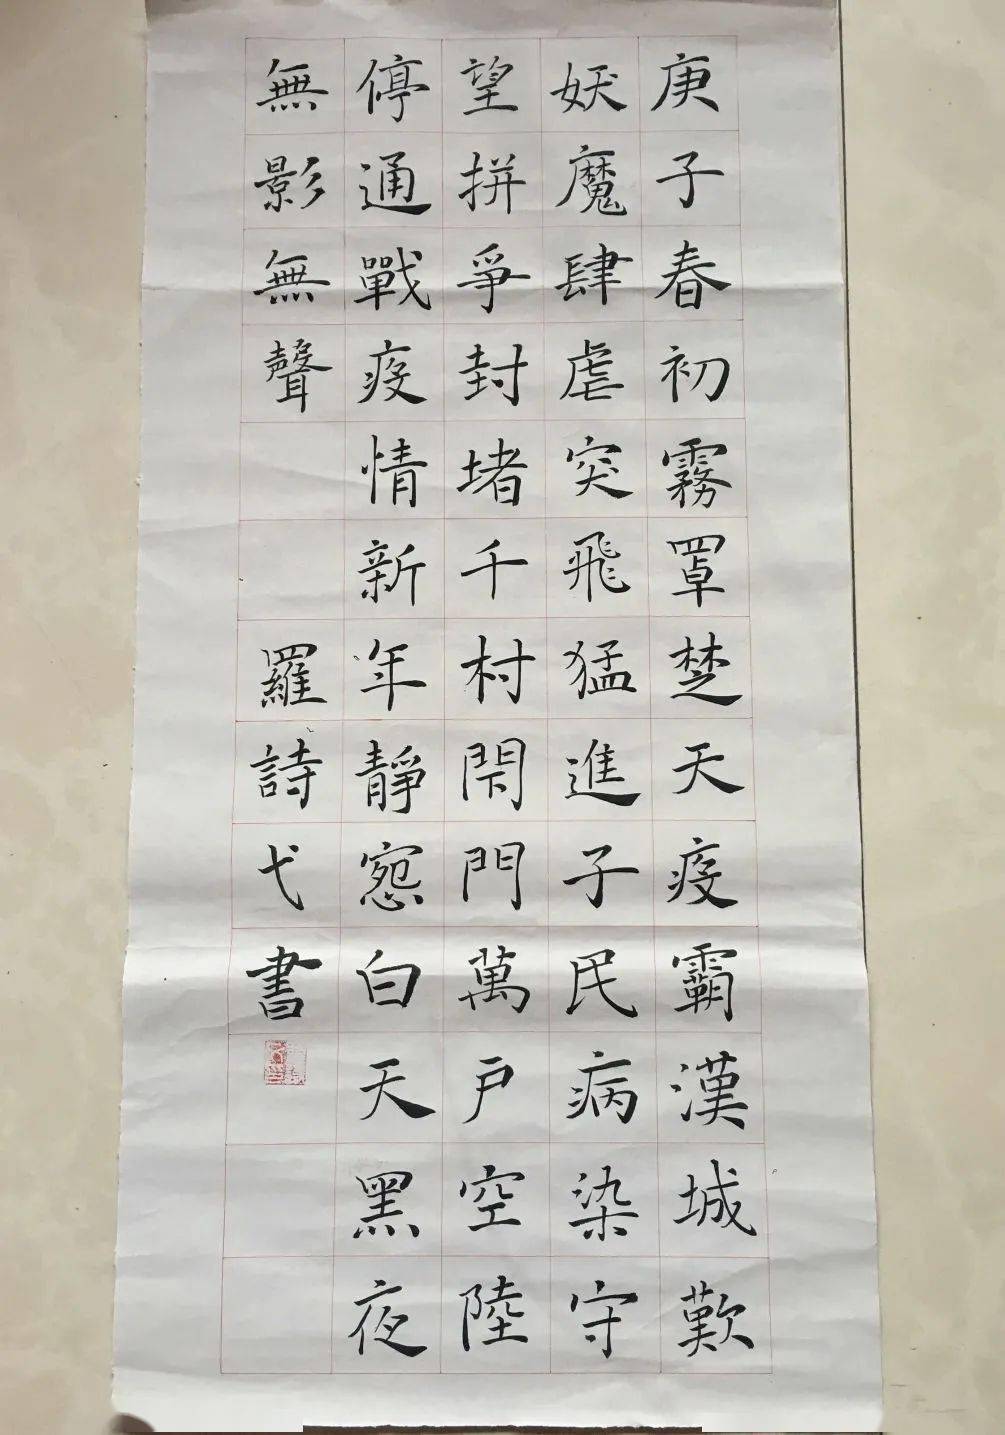 庚子春初霧罩楚天疫霸漢城歎
妖魔肆虐突飛猛進子民病染守
望拼爭封堵千村閇門萬戶空陸
停通戰疫情新年靜窓白天黑夜
無影無聲
羅詩弋書